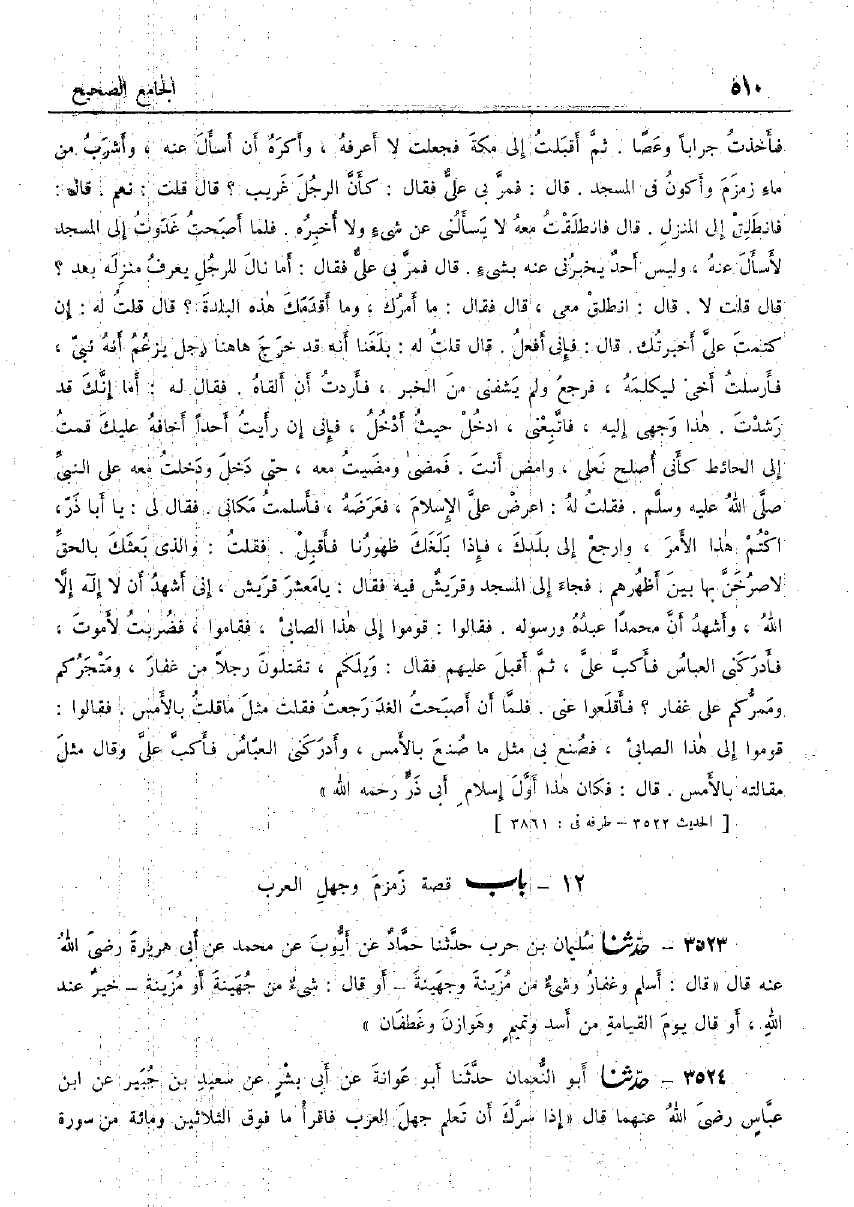 ٥١٠ الجامع الصحيح
فأخذتُ جراباً وعَصًا . ثمَّ أقبَلتُ إلى مكةَ فجعلت لا أعرفهُ ، وأكرَهُ أن أسألَ عنه ، وأشرَبُ من
ماءِ زمزَمَ وأكونُ فى المسجد . قال : فمرَّ بى علىٌّ فقال : كأنَّ الرجُلَ غَريب ؟ قال قلت : نعم . قال :
فانطَلِقْ إلى المنزلِ . قال فانطلَقْتُ معهُ لا يَسألُنى عن شىءٍ ولا أُخبِرُه . فلما أصبَحتُ غَدَوتُ إلى المسجد
لأسألَ عنهُ ، وليس أحدٌ يخبرُنى عنه بشىءٍ . قال فمرَّ بى علىٌّ فقال : أما نالَ للرجُلِ يعرفُ منزِلَه بعد ؟
قال قلت لا . قال : انطلقْ معى ، قال فقال : ما أمرُك ، وما أقدَمَكَ هذه البلدةَ ؟ قال قلتُ له : إن
كتمتَ علىَّ أخبرتُك . قال : فإنى أفعلُ . قال قلتُ له : بلَغَنا أنه قد خرَجَ هاهنا رجل يزعُمُ أنهُ نبىّ ،
فأرسلتُ أخى ليكلمَهُ ، فرجعَ ولم يَشفنى منَ الخبر ، فأردتُ أن ألقاهُ . فقال له : أما إنَّكَ قد
رَشدْتَ . هذا وَجهى إليه ، فاتَّبِعْنى ، ادخُلْ حيثُ أَدْخُلُ ، فإنى إن رأيتُ أحداً أخافهُ عليكَ قمتُ
إلى الحائط كأنى أُصلح نَعلى ، وامض أنتَ . فمضىٰ ومضَيتُ معه ، حتى دَخلَ ودَخلتُ معه على النبىِّ
صلَّى اللهُ عليه وسلَّم . فقلتُ لهُ : اعرضْ علىَّ الإسلامَ ، فعَرَضَهُ ، فأسلمتُ مَكانى . فقال لى : يا أبا ذَرّ ،
اكتُمْ هذا الأمرَ ، وارجعْ إلى بلدكَ ، فإذا بَلَغَكَ ظهورُنا فأقبِلْ . فقلتُ : والذى بَعثَكَ بالحقِّ
لاصرُخَنَّ بها بينَ أظهُرهم . فجاءَ إلى المسجد وقرَيشٌ فيه فقال : يامَعشرَ قرَيش ، إنى أشهدُ أن لا إلَه إلَّا
اللهُ ، وأشهدُ أنَّ محمدًا عبدُهُ ورسوله . فقالوا : قوموا إلى هذا الصابئ ، فقاموا ، فضُربتُ لأموتَ ،
فأدرَكَنى العباسُ فأكبَّ علىَّ ، ثمَّ أقبلَ عليهم فقال : وَيلَكم ، تقتلونَ رجلاً من غفارَ ، ومَتْجَرُكم
ومَمرُّكم على غفار ؟ فأقلَعوا عنى . فلمَّا أن أصبَحتُ الغدَ رَجعتُ فقلت مثلَ ماقلتُ بالأمس . فقالوا :
قوموا إلى هذا الصابئ ، فصُنع بى مثل ما صُنعَ بالأمس ، وأدرَكنى العبّاسُ فأكبَّ علىَّ وقال مثلَ
مقالته بالأمس . قال : فكان هذا أوَّلَ إسلامِ أبى ذَرٍّ رحمه الله »
[ الحديث ٣٥٢٢ – طرفه فى : ٣٨٦١ ]
١٢ – باب قصة زَمزمَ وجهلِ العرب
٣٥٢٣ – حدّثنا سُليمان بن حرب حدَّثنا حمَّادٌ عن أيُّوبَ عن محمد عن أبى هريرةَ رضىَ اللهُ
عنه قال « قال : أسلم وغفارُ وشىءٌ من مُزَينةَ وجهَينةَ – أو قال : شىءٌ من جُهَينةَ أو مُزَينة – خيرٌ عند
اللهِ ، أو قال يومَ القيامةِ من أسد وتميمٍ وهَوازنَ وغَطفَان »
٣٥٢٤ – حدّثنا أبو النُّعمان حدَّثَنا أبو عَوانةَ عن أبى بشْرٍ عن سعيدِ بن جُبَير عن ابن
عبَّاس رضىَ اللهُ عنهما قال « إذا سَرَّكَ أن تَعلم جهلَ العرب فاقرأْ ما فوق الثلاثين ومائة من سورة